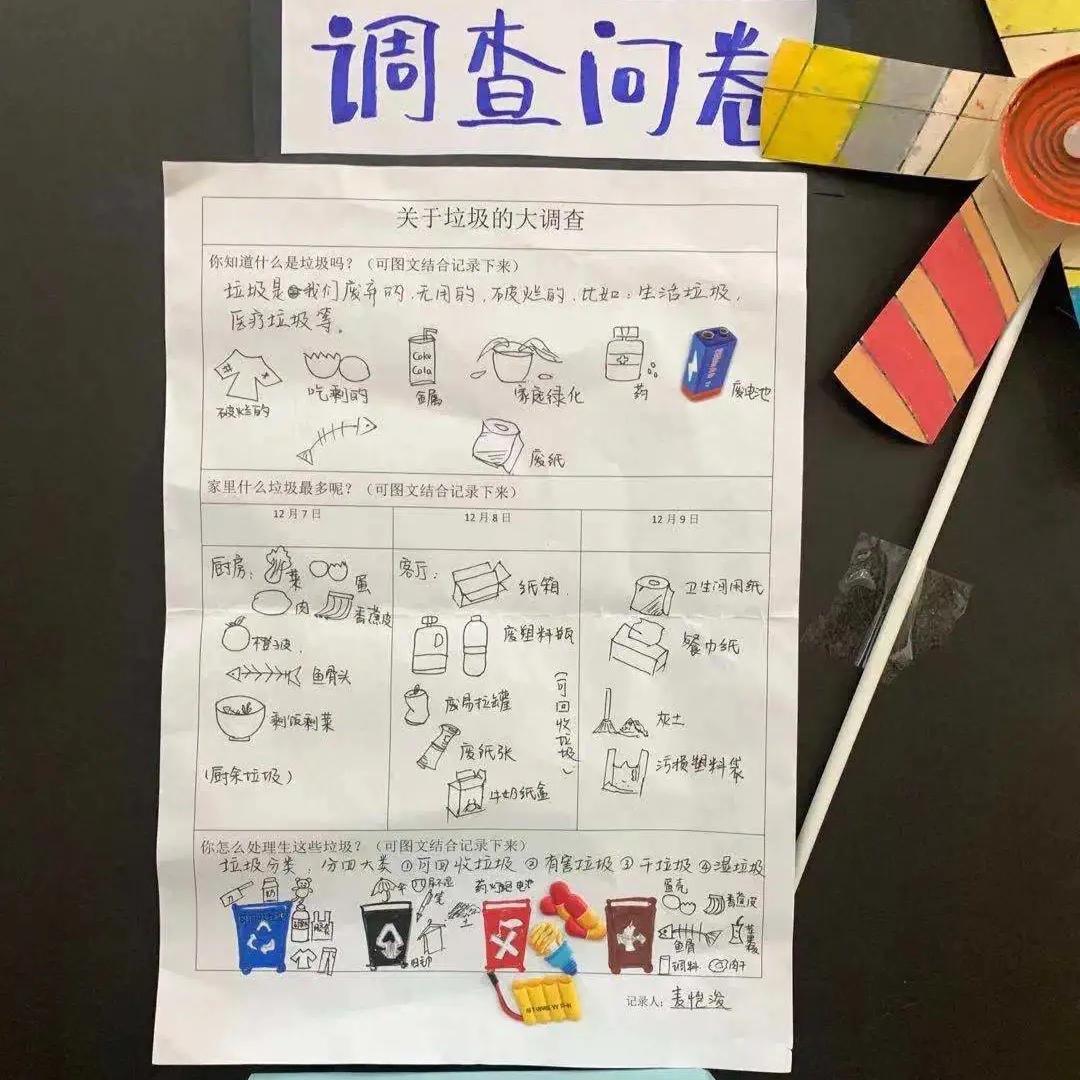 调查问卷
关于垃圾的大调查
你知道什么是垃圾吗？（可图文结合记录下来）
垃圾是我们废弃的、无用的、破烂的，比如：生活垃圾，
医疗垃圾等。
Coke
Cola
破烂的
吃剩的
金属
家庭绿化
药
废电池
废纸
家里什么垃圾最多呢？（可图文结合记录下来）
12月7日
12月8日
12月9日
厨房：
菜
蛋
肉
香蕉皮
橙子皮
鱼骨头
剩饭剩菜
（厨余垃圾）
客厅：
纸箱
废塑料瓶
废易拉罐
废纸张
牛奶纸盒
（可回收垃圾）
卫生间用纸
餐巾纸
灰土
污损塑料袋
你怎么处理生这些垃圾？（可图文结合记录下来）
垃圾分类，分四大类①可回收垃圾②有害垃圾③干垃圾④湿垃圾
尿不湿
笔
土
药
电池
蛋壳
香蕉皮
鱼骨
苹果核
调料
肉干
记录人：麦恺浚